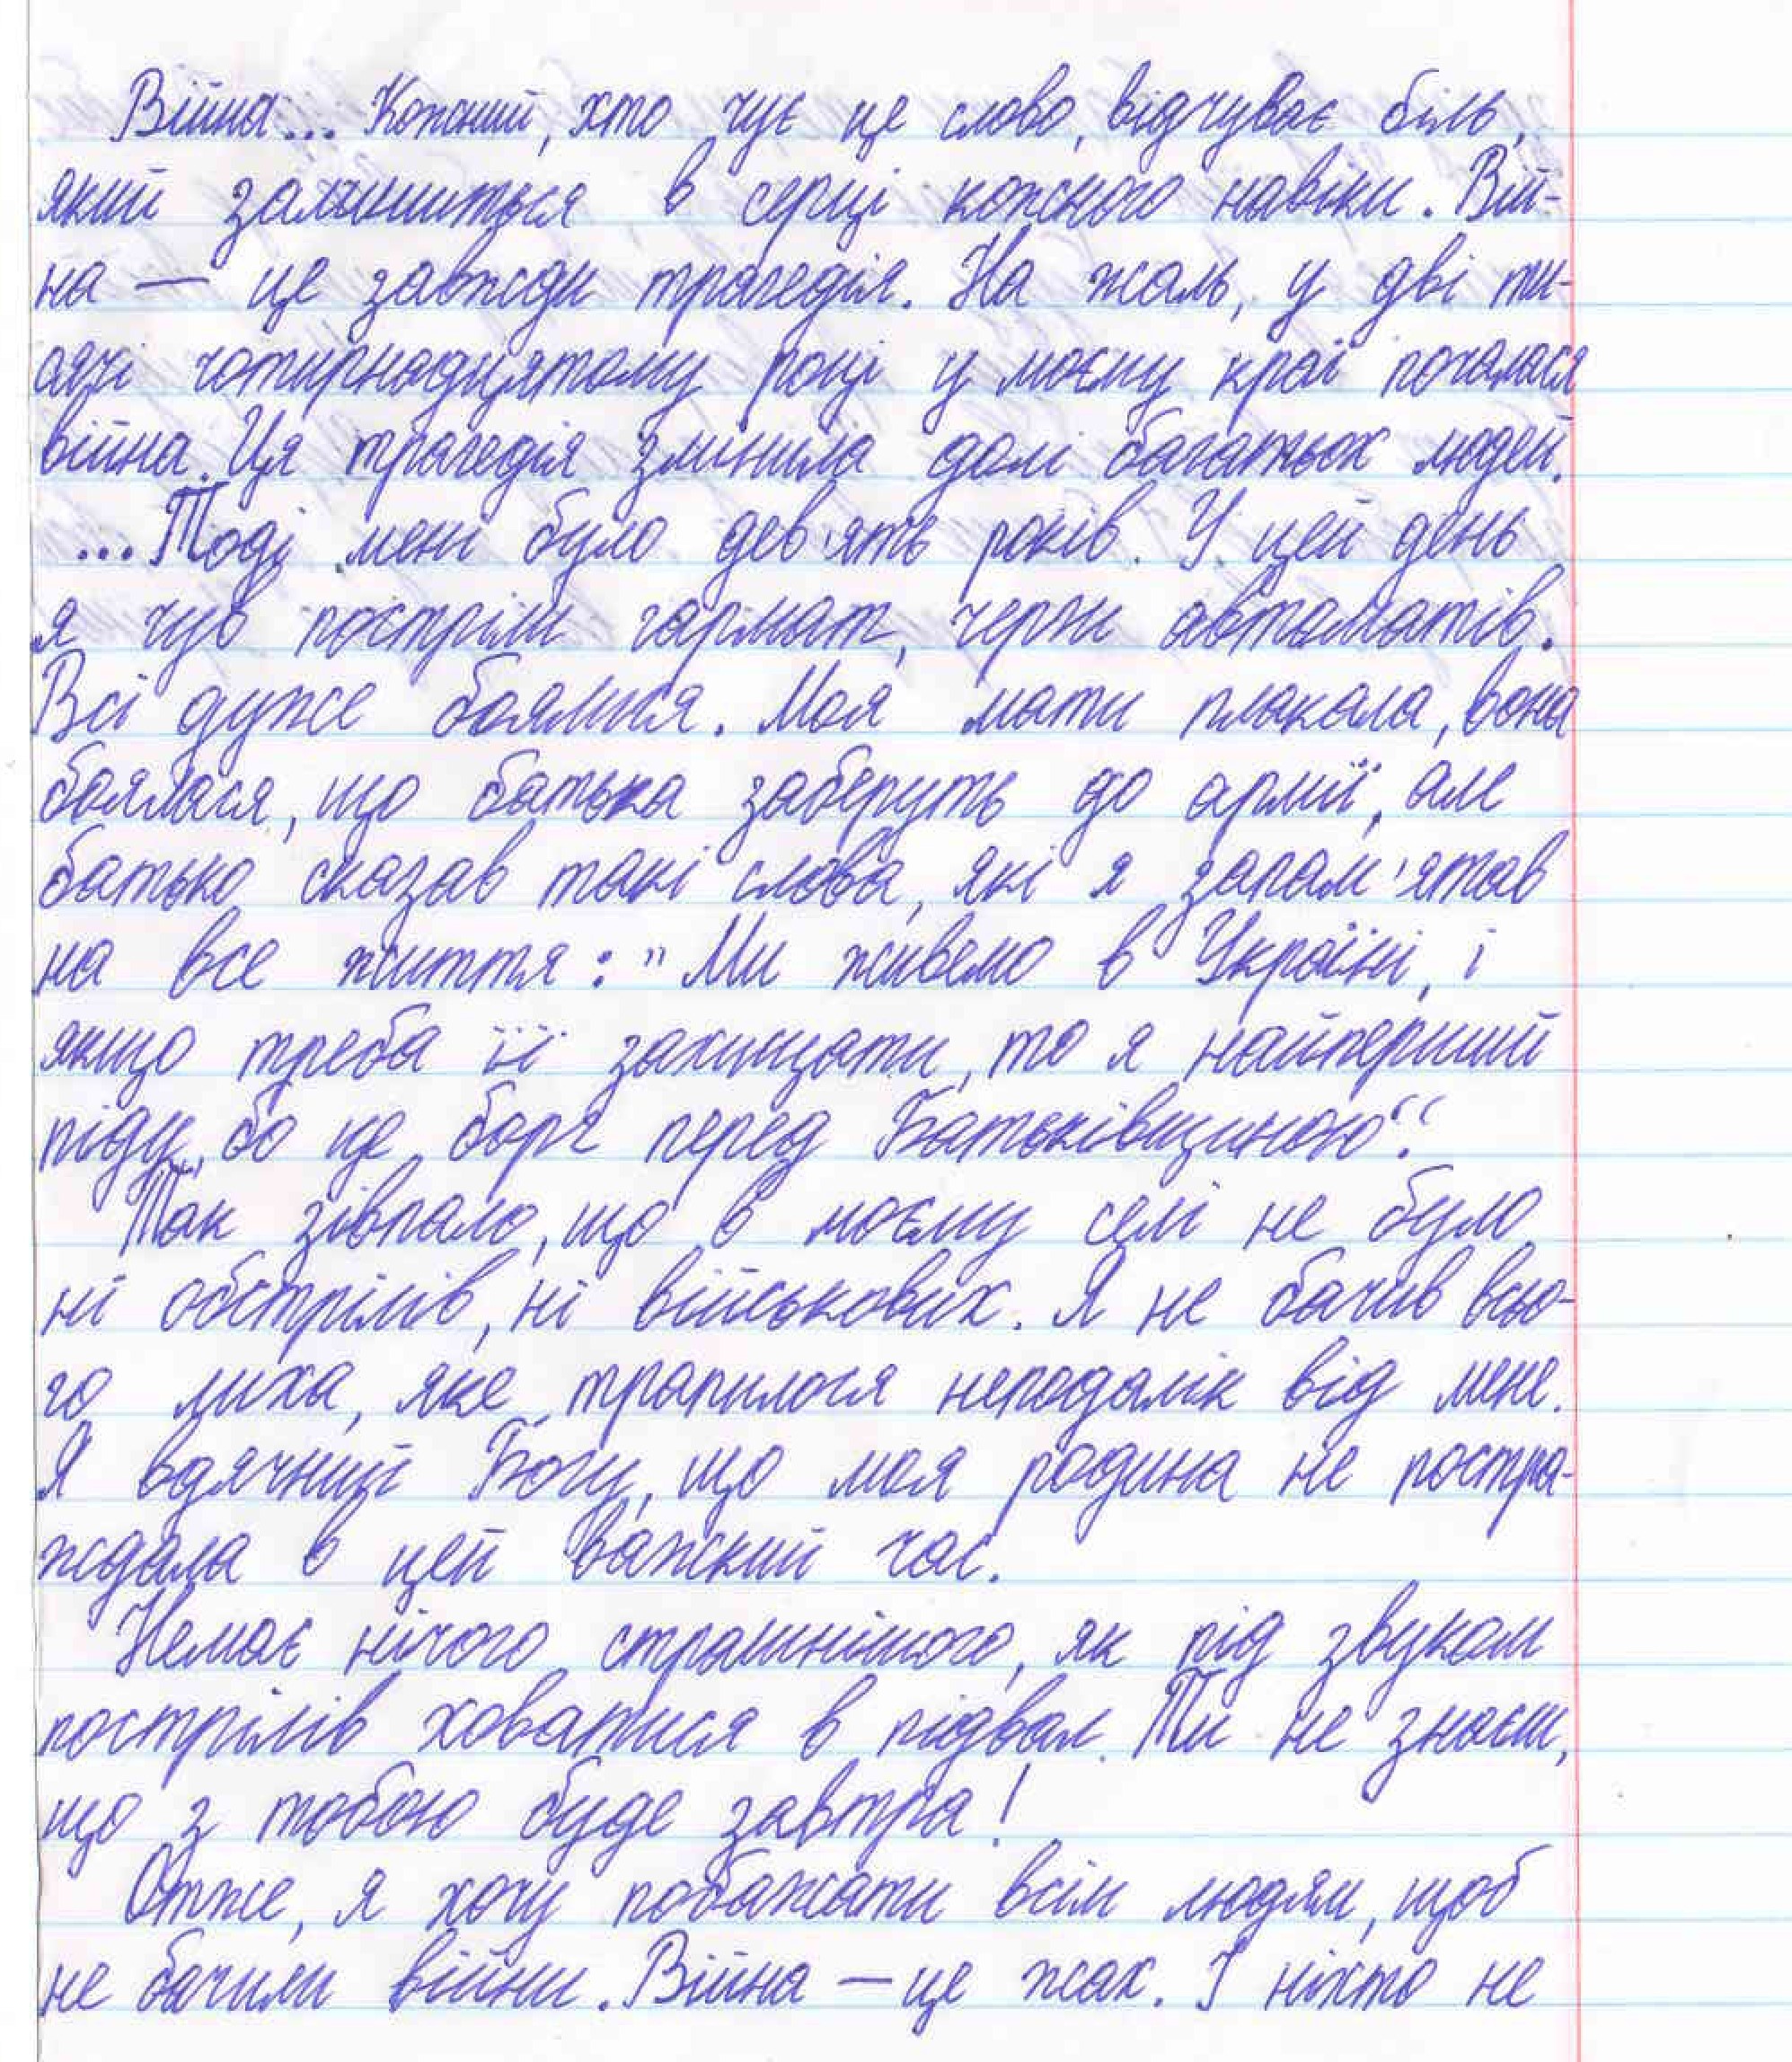 Війна... Кожний, хто чує це слово, відчуває біль,
який залишиться в серці кожного навіки. Вій-
на — це завжди трагедія. На жаль, у дві ти-
сячі чотирнадцятому році у моєму краї почалася
війна. Ця трагедія змінила долі багатьох людей.
...Тоді мені було дев'ять років. У цей день
я чув постріли гармат, черги автоматів.
Всі дуже боялися. Моя мати плакала, вона
боялася, що батька заберуть до армії, але
батько сказав такі слова, які я запам'ятав
на все життя: "Ми живемо в Україні, і
якщо треба її захищати, то я найперший
піду, бо це борг перед Батьківщиною".
Так зівпало, що в моєму селі не було
ні обстрілів, ні військових. Я не бачив всьо-
го лиха, яке трапилося неподалік від мене.
Я вдячний Богу, що моя родина не постра-
ждала в цей важкий час.
Немає нічого страшнішого, як під звуком
пострілів ховатися в підвал. Ти не знаєш,
що з тобою буде завтра!
Отже, я хочу побажати всім людям, щоб
не бачили війни. Війна — це жах. І ніхто не